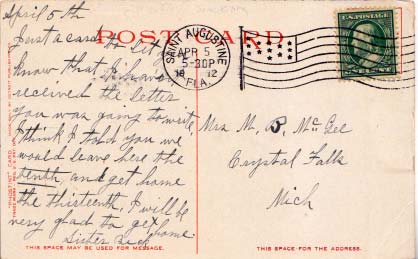 April 5th
Just a card to let
POST CARD
know that I have
received the letter
you was going to write
I think I told you we
would leave here the
tenth and get home
the thirteenth, I will be
very glad to get
home.
Sister
THIS SPACE MAY BE USED FOR MESSAGE.
"PHOSTINT" CARD
SAINT AUGUSTINE
APR 5
5-30P
1912
FLA.
Mrs M. B. McGee
Crystal Falls
Mich
THIS SPACE FOR THE ADDRESS.